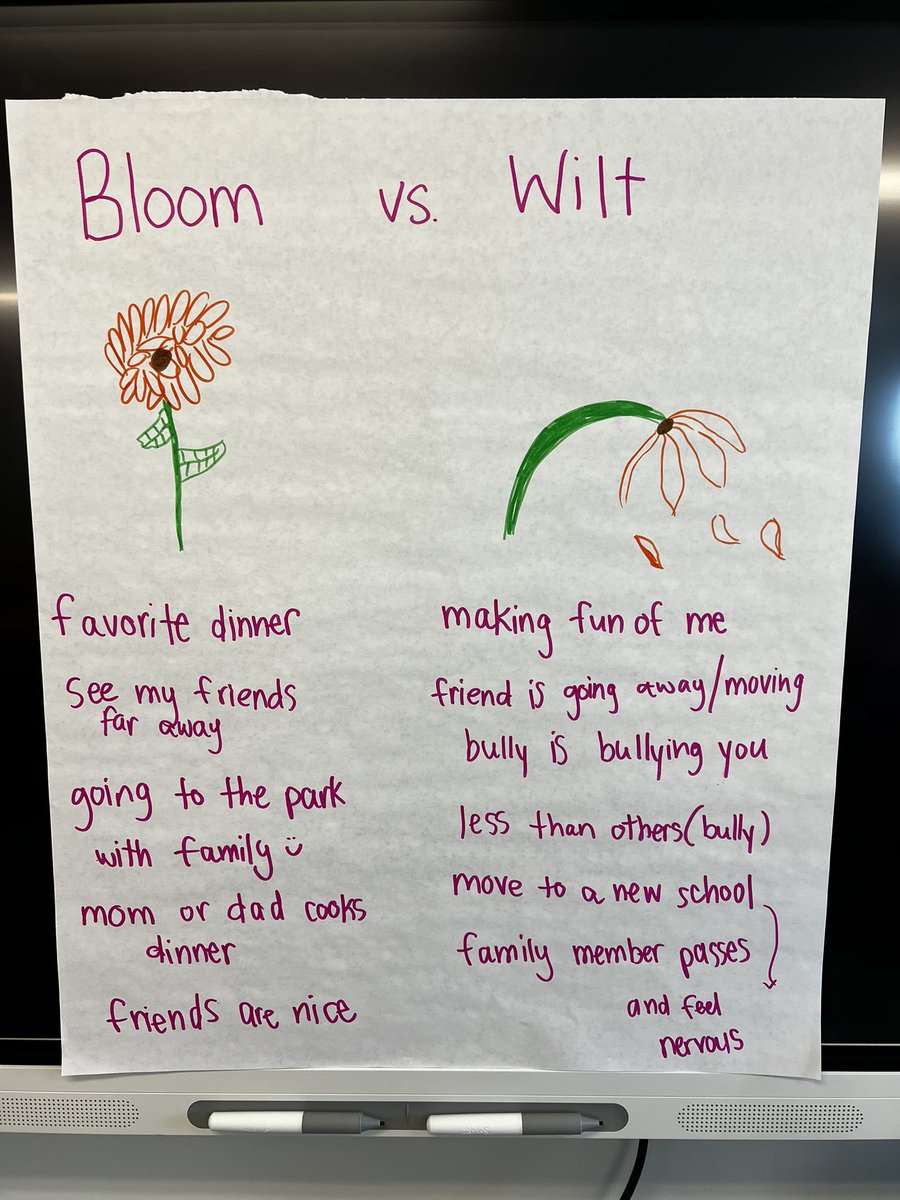 Bloom vs. Wilt
favorite dinner
see my friends
far away
going to the park
with family
mom or dad cooks
dinner
friends are nice
making fun of me
friend is going away/moving
bully is bullying you
less than others (bully)
move to a new school
family member passes
and feel
nervous